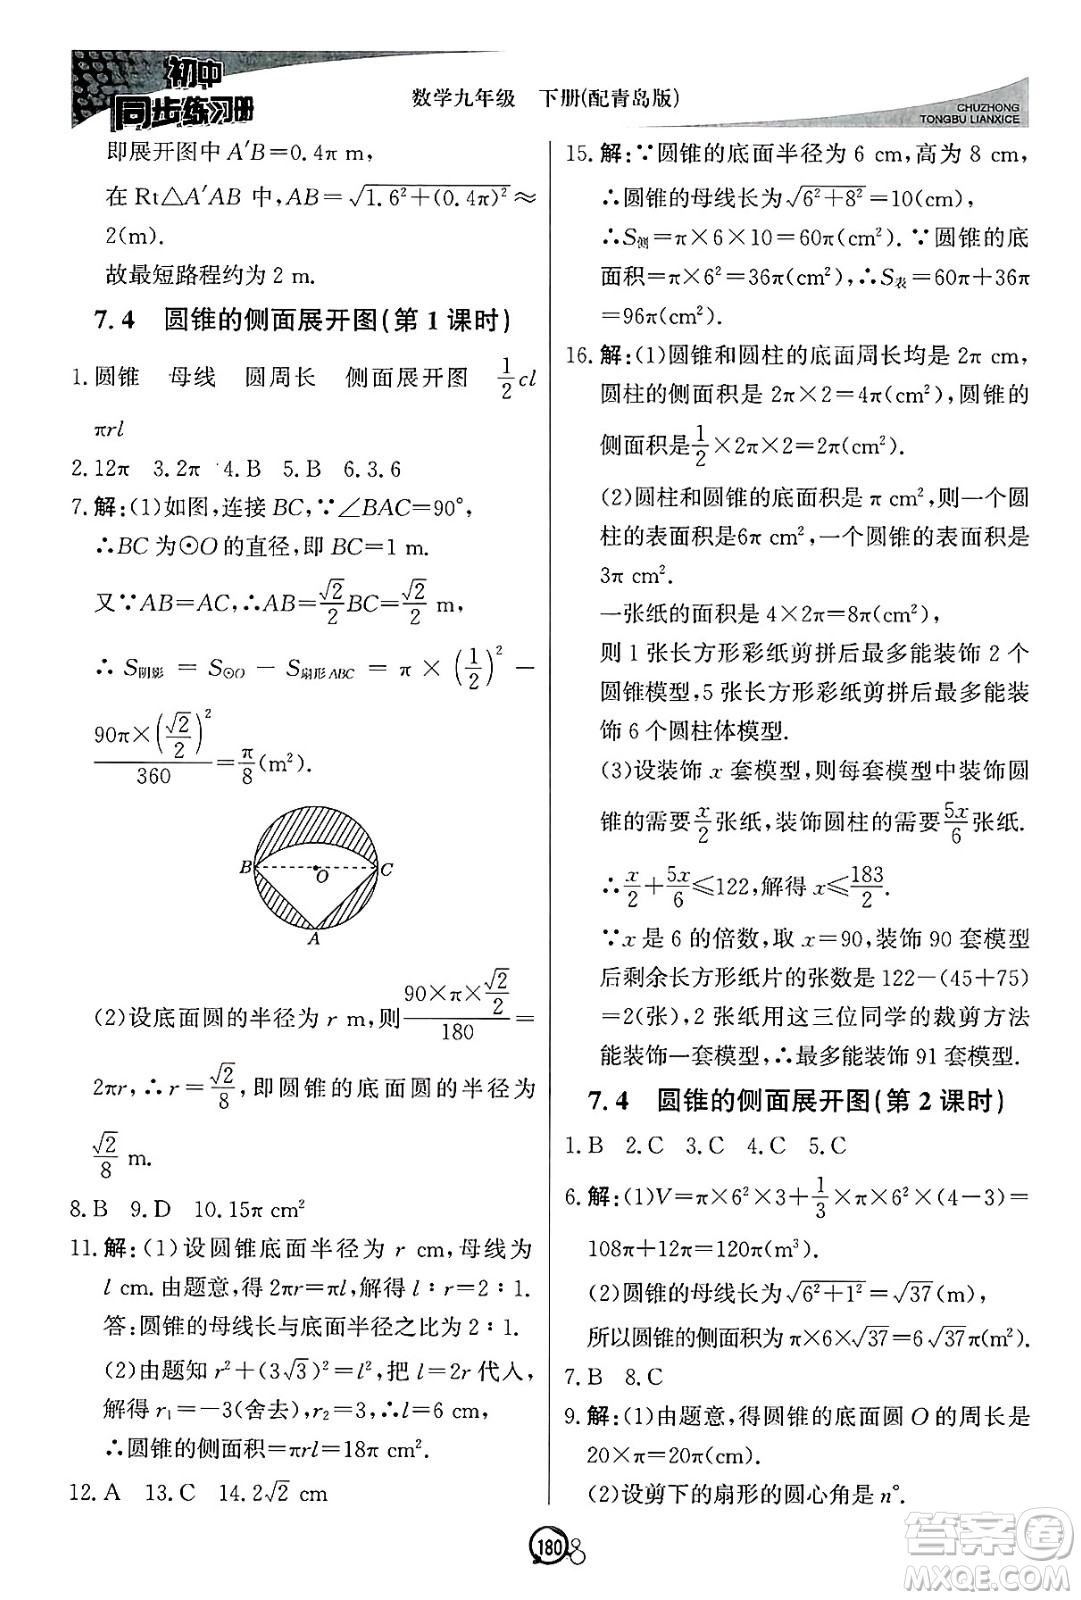 初中
同步练习册
数学九年级 下册(配青岛版)
CHUZHONG
TONGBU LIANXICE
即展开图中 A′B=0.4π m,
在 Rt△A′AB 中,AB=√(1.6²+(0.4π)²)≈
2(m).
故最短路程约为 2 m.
7.4 圆锥的侧面展开图(第 1 课时)
1.圆锥 母线 圆周长 侧面展开图 1/2 cl
πrl
2.12π 3.2π 4.B 5.B 6.3.6
7.解:(1)如图,连接 BC,∵∠BAC=90°,
∴BC 为⊙O 的直径,即 BC=1 m.
又∵AB=AC,∴AB=√2/2 BC=√2/2 m,
∴ S阴影 = S⊙O − S扇形ABC = π × (1/2)² −
90π×(√2/2)²/360=π/8(m²).
B O C
A
(2)设底面圆的半径为 r m,则 (90×π×√2/2)/180=
2πr,∴r=√2/8,即圆锥的底面圆的半径为
√2/8 m.
8.B 9.D 10.15π cm²
11.解:(1)设圆锥底面半径为 r cm,母线为
l cm.由题意,得 2πr=πl,解得 l∶r=2∶1.
答:圆锥的母线长与底面半径之比为 2∶1.
(2)由题知 r²+(3√3)²=l²,把 l=2r 代入,
解得 r₁=−3(舍去),r₂=3,∴l=6 cm,
∴圆锥的侧面积=πrl=18π cm².
12.A 13.C 14.2√2 cm
15.解:∵圆锥的底面半径为 6 cm,高为 8 cm,
∴圆锥的母线长为√(6²+8²)=10(cm),
∴S侧=π×6×10=60π(cm²).∵圆锥的底
面积=π×6²=36π(cm²),∴S表=60π+36π
=96π(cm²).
16.解:(1)圆锥和圆柱的底面周长均是 2π cm,
圆柱的侧面积是 2π×2=4π(cm²),圆锥的
侧面积是 1/2×2π×2=2π(cm²).
(2)圆柱和圆锥的底面积是 π cm²,则一个圆
柱的表面积是6π cm²,一个圆锥的表面积是
3π cm².
一张纸的面积是 4×2π=8π(cm²),
则 1 张长方形彩纸剪拼后最多能装饰 2 个
圆锥模型,5 张长方形彩纸剪拼后最多能装
饰 6 个圆柱体模型.
(3)设装饰 x 套模型,则每套模型中装饰圆
锥的需要 x/2 张纸,装饰圆柱的需要 5x/6 张纸.
∴x/2+5x/6≤122,解得 x≤183/2.
∵x 是 6 的倍数,取 x=90,装饰 90 套模型
后剩余长方形纸片的张数是 122−(45+75)
=2(张),2 张纸用这三位同学的裁剪方法
能装饰一套模型,∴最多能装饰 91 套模型.
7.4 圆锥的侧面展开图(第 2 课时)
1.B 2.C 3.C 4.C 5.C
6.解:(1)V=π×6²×3+1/3×π×6²×(4−3)=
108π+12π=120π(m³).
(2)圆锥的母线长为√(6²+1²)=√37(m),
所以圆锥的侧面积为 π×6×√37=6√37π(m²).
7.B 8.C
9.解:(1)由题意,得圆锥的底面圆 O 的周长是
20×π=20π(cm).
(2)设剪下的扇形的圆心角是 n°.
180
答案圈
MXQE.COM